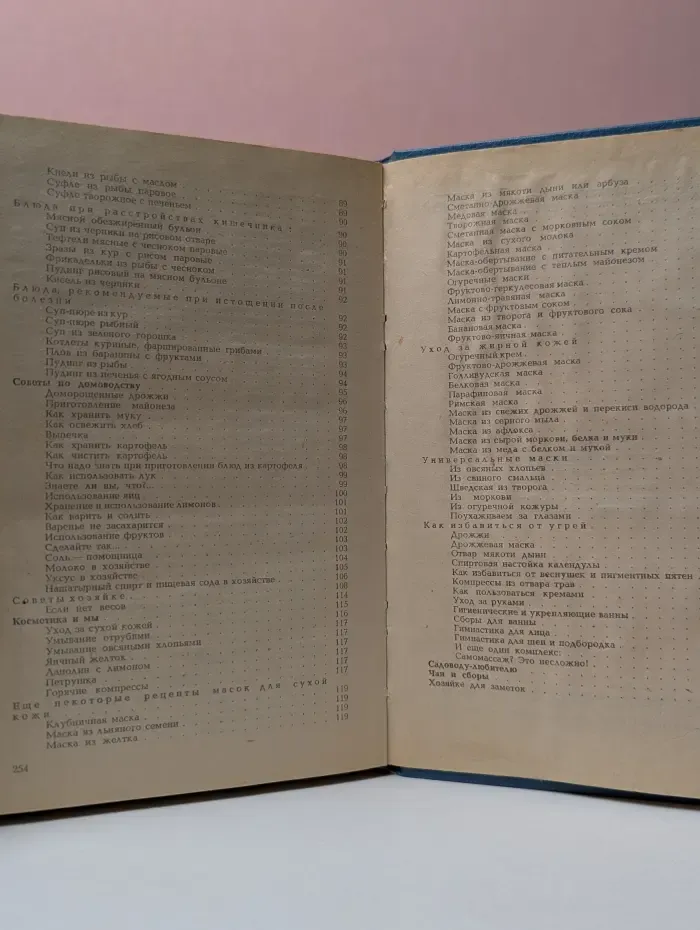 Кнели из рыбы с маслом
Суфле из рыбы паровое . 89
Суфле творожное с печеньем . 89
Блюда при расстройствах кишечника: 90
Мясной обезжиренный бульон . 90
Суп из черники на рисовом отваре . 90
Тефтели мясные с чесноком паровые 90
Зразы из кур с рисом паровые . 91
Фрикадельки из рыбы с чесноком . 91
Пудинг рисовый на мясном бульоне . 91
Кисель из черники . 92
Блюда, рекомендуемые при истощении после
болезни
Суп-пюре из кур . 92
Суп-пюре рыбный . 92
Суп из зеленого горошка . 92
Котлеты куриные, фаршированные грибами . 93
Плов из баранины с фруктами . 93
Пудинг из рыбы . 94
Пудинг из печенья с ягодным соусом . 94
Советы по домоводству 95
Доморощенные дрожжи . 96
Приготовление майонеза 96
Как хранить муку . 97
Как освежить хлеб . 97
Выпечка . 97
Как хранить картофель . 98
Как чистить картофель . 98
Что надо знать при приготовлении блюд из картофеля . 98
Как использовать лук . 99
Знаете ли вы, что?... 99
Использование яиц . 100
Хранение и использование лимонов . 101
Как варить и солить . 101
Варенье не засахарится . 102
Использование фруктов . 102
Сделайте так... 103
Соль — помощница . 103
Молоко в хозяйстве . 104
Уксус в хозяйстве . 105
Нашатырный спирт и пищевая сода в хозяйстве . 106
Советы хозяйке . 108
Если нет весов . 114
Косметика и мы 115
Уход за сухой кожей . 116
Умывание отрубями . 117
Умывание овсяными хлопьями . 117
Яичный желток . 117
Ланолин с лимоном . 117
Петрушка . 117
Горячие компрессы . 117
Еще некоторые рецепты масок для сухой
кожи 119
Клубничная маска . 119
Маска из льняного семени . 119
Маска из желтка . 119
254
Маска из мякоти дыни или арбуза
Сметанно-дрожжевая маска .
Медовая маска .
Творожная маска .
Сметанная маска с морковным соком .
Маска из сухого молока
Картофельная маска .
Маска-обертывание с питательным кремом
Маска-обертывание с теплым майонезом
Огуречные маски
Фруктово-геркулесовая маска .
Лимонно-травяная маска .
Маска с фруктовым соком .
Маска из творога и фруктового сока .
Банановая маска .
Фруктово-яичная маска .
Уход за жирной кожей
Огуречный крем .
Фруктово-дрожжевая маска .
Голливудская маска .
Белковая маска .
Парафиновая маска .
Римская маска .
Маска из свежих дрожжей и перекиси водорода .
Маска из серного мыла .
Маска из афлокса .
Маска из сырой моркови, белка и муки .
Маска из меда с белком и мукой .
Универсальные маски .
Из овсяных хлопьев .
Из свиного смальца .
Шведская из творога .
Из моркови .
Из огуречной кожуры .
Поухаживаем за глазами .
Как избавиться от угрей .
Дрожжи .
Дрожжевая маска .
Отвар мякоти дыни .
Спиртовая настойка календулы .
Как избавиться от веснушек и пигментных пятен .
Компрессы из отвара трав .
Как пользоваться кремами .
Уход за руками .
Гигиенические и укрепляющие ванны .
Сборы для ванны .
Гимнастика для лица .
Гимнастика для шеи и подбородка .
И еще один комплекс:
Самомассаж? Это несложно! .
Садоводу-любителю .
Чаи и сборы .
Хозяйке для заметок .